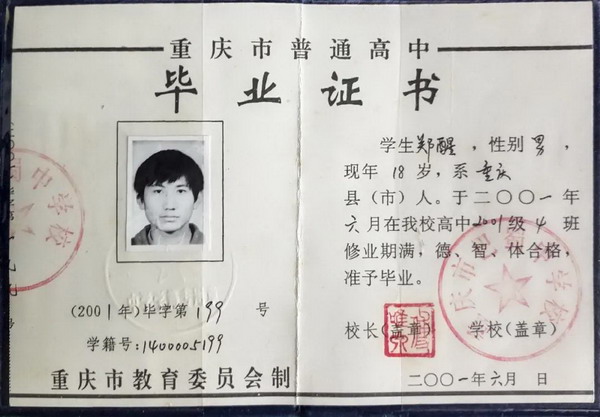 重庆市普通高中
毕业证书
学生郑醒，性别男，
现年18岁，系重庆
县（市）人。于二〇〇一年
六月在我校高中2001级4班
修业期满，德、智、体合格，
准予毕业。
校长（盖章） 学校（盖章）
二〇〇一年六月 日
(2001年)毕字第199号
学籍号:1400005199
重庆市教育委员会制
中学校
重庆市
学校